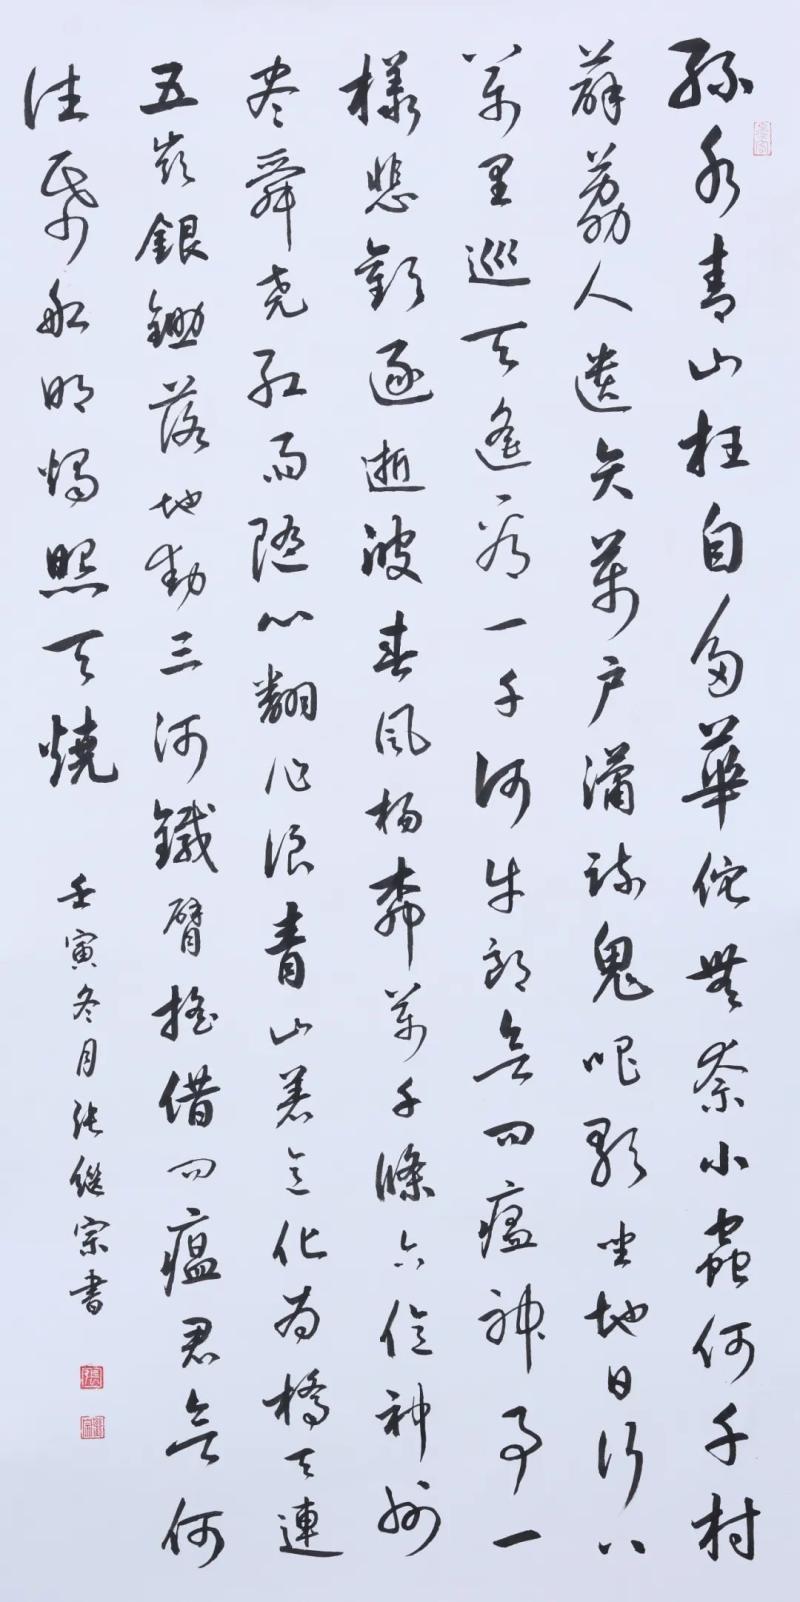 绿水青山枉自多華佗無奈小蟲何千村
薜荔人遗矢萬户瀟疏鬼唱歌坐地日行八
萬里巡天遥看一千河牛郎欲问瘟神事一
樣悲歡逐逝波春風楊柳萬千條六億神州
尽舜尧红雨随心翻作浪青山着意化为橋天連
五嶺銀鋤落地動三河鐵臂摇借问瘟君欲何
往纸船明燭照天燒
壬寅冬月张继宗書